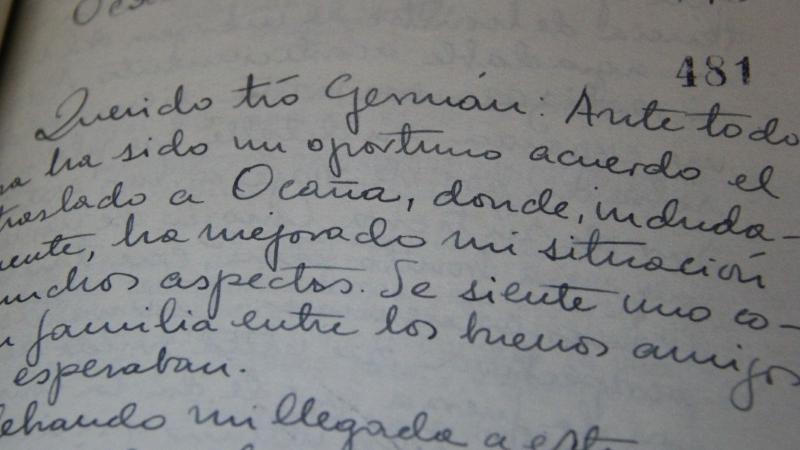 481
Querido tío Germán: Ante todo
ha sido un oportuno acuerdo el
traslado a Ocaña, donde, induda-
mente, ha mejorado mi situación
muchos aspectos. Se siente uno co-
familia entre los buenos amigos
esperaban.
mi llegada a